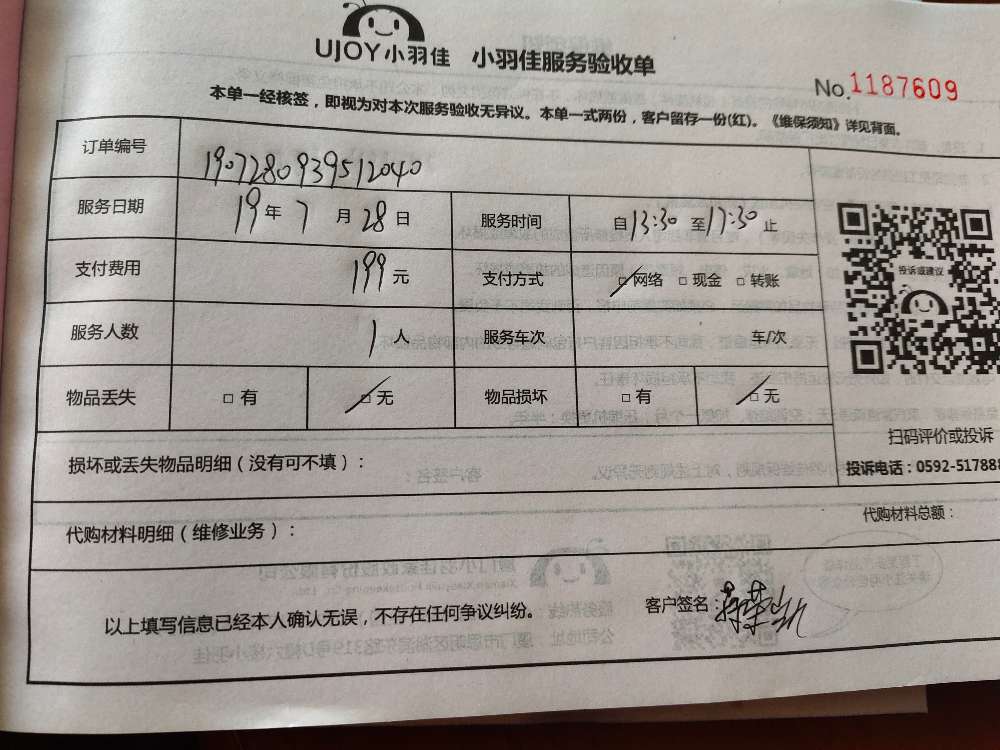 UJOY小羽佳 小羽佳服务验收单
No.1187609
本单一经核签，即视为对本次服务验收无异议。本单一式两份，客户留存一份(红)。《维保须知》详见背面。
订单编号 1907280939512040
服务日期 19年7月28日 服务时间 自13:30至17:30止
支付费用 199元 支付方式 □网络 □现金 □转账
投诉或建议
服务人数 1人 服务车次 车/次
物品丢失 □有 □无 物品损坏 □有 □无
扫码评价或投诉
投诉电话：0592-517888
损坏或丢失物品明细（没有可不填）：
代购材料明细（维修业务）： 代购材料总额：
以上填写信息已经本人确认无误，不存在任何争议纠纷。 客户签名：